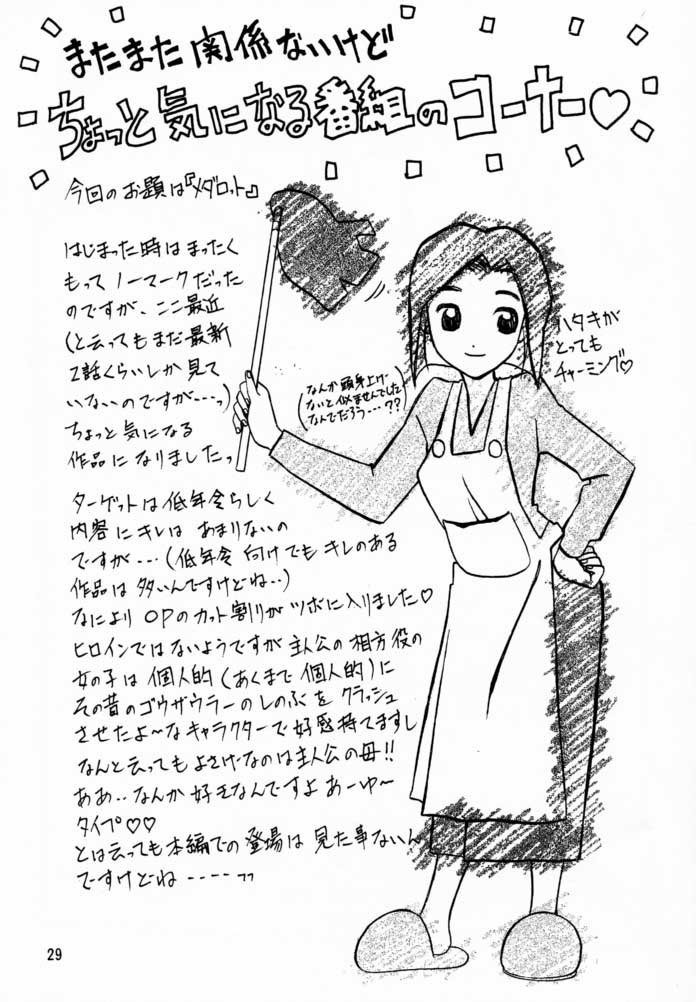 またまた関係ないけど
ちょっと気になる番組のコーナー♡
今回のお題は『メダロット』
はじまった時はまったく
もってノーマークだった
のですが、ここ最近
(と云ってもまだ最新
2話くらいしか見て
いないのですが---っ)
ちょっと気になる
作品になりましたっ
ターゲットは低年令らしく
内容にキレはあまりないの
ですが---(低年令向けでもキレのある
作品は多いんですけどね‥)
なにより OPのカット割りがツボに入りました♡
ヒロインではないようですが主人公の相方役の
女の子は個人的(あくまで個人的)に
その昔のゴウザウラーのしのぶをクラッシュ
させたよ〜なキャラクターで好感持てますし
なんと云ってもよさげなのは主人公の母!!
ああ‥なんか好きなんですよあーゆ〜
タイプ♡♡
とは云っても本編での登場は見た事ないん
ですけどね----
(なんか頭身上げ
ないと似ませんでした
なんでだろう---??)
ハタキが
とっても
チャーミング♡
29